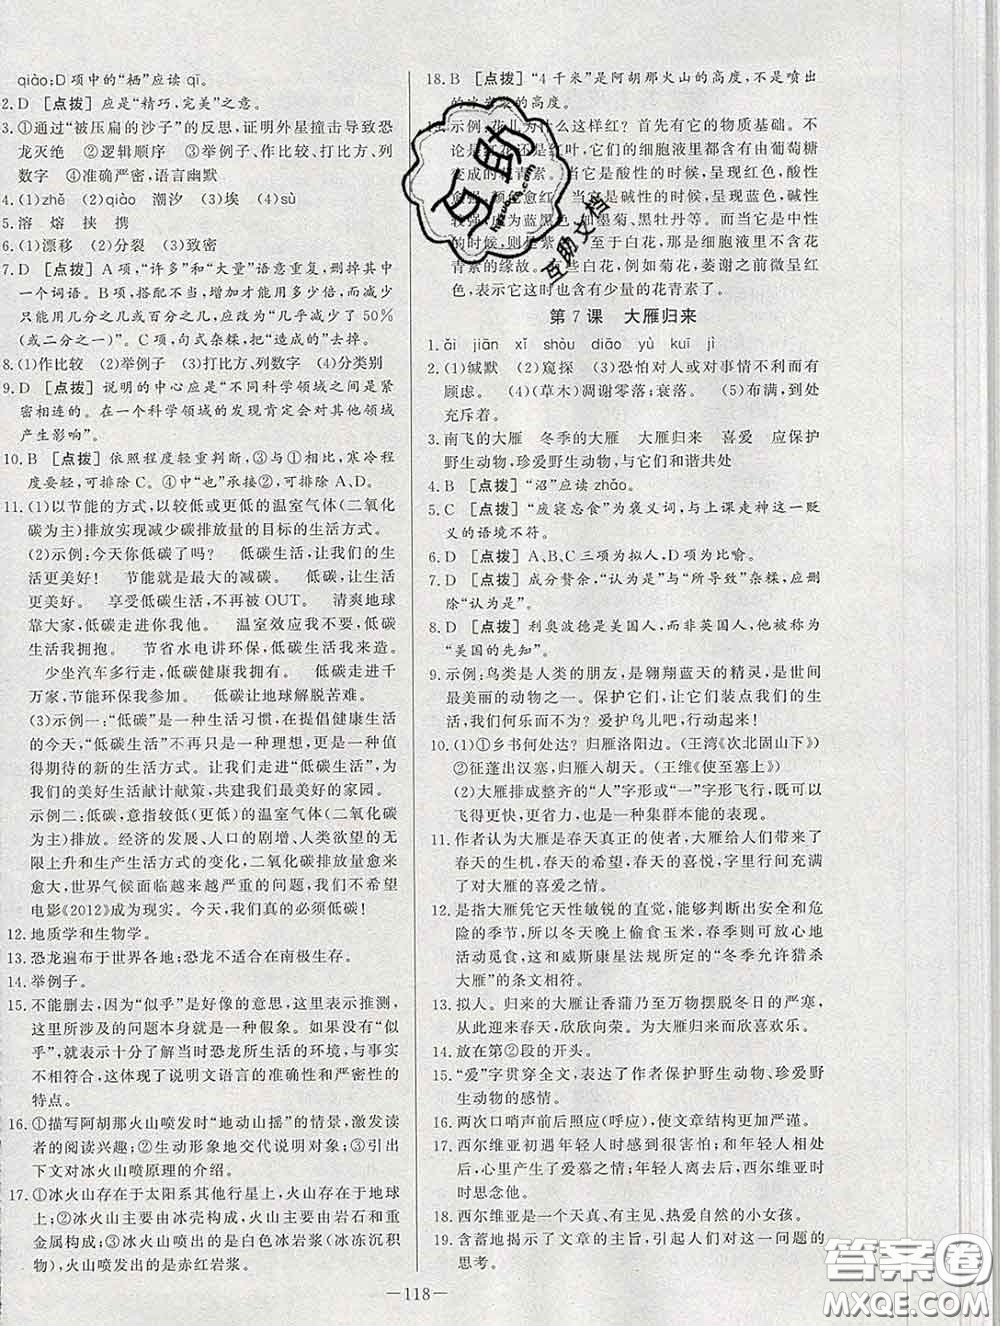 qiào;D项中的“栖”应读 qī。
2. D [点拨] 应是“精巧,完美”之意。
3. ①通过“被压扁的沙子”的反思,证明外星撞击导致恐
龙灭绝 ②逻辑顺序 ③举例子、作比较、打比方、列
数字 ④准确严密,语言幽默
4. (1)zhě (2)qiào 潮汐 (3)埃 (4)sù
5. 溶 熔 挟 携
6. (1)漂移 (2)分裂 (3)致密
7. D [点拨] A项,“许多”和“大量”语意重复,删掉其中
一个词语。B项,搭配不当,增加才能用多少倍,而减少
只能用几分之几或百分之几,应改为“几乎减少了50%
(或二分之一)”。C项,句式杂糅,把“造成的”去掉。
8. (1)作比较 (2)举例子 (3)打比方、列数字 (4)分类别
9. D [点拨] 说明的中心应是“不同科学领域之间是紧
密相连的。在一个科学领域的发现肯定会对其他领域
产生影响”。
10. B [点拨] 依照程度轻重判断,③与①相比,寒冷程
度要轻,可排除C。④中“也”承接②,可排除A、D。
11. (1)以节能的方式,以较低或更低的温室气体(二氧化
碳为主)排放实现减少碳排放量的目标的生活方式。
(2)示例:今天你低碳了吗? 低碳生活,让我们的生
活更美好! 节能就是最大的减碳。 低碳,让生活
更美好。 享受低碳生活,不再被OUT。 清爽地球
靠大家,低碳走进你我他。 温室效应我不要,低碳
生活我拥抱。 节省水电讲环保,低碳生活我骄傲。
少坐汽车多行走,低碳健康我拥有。 低碳走进千
万家,节能环保我参加。 低碳让地球解脱苦难。
(3)示例一:“低碳”是一种生活习惯,在提倡健康生活
的今天,“低碳生活”不再只是一种理想,更是一种值
得期待的新的生活方式。让我们走进“低碳生活”,为
我们的美好生活献计献策,共建我们最美好的家园。
示例二:低碳,意指较低(更低)的温室气体(二氧化碳
为主)排放。经济的发展、人口的剧增、人类欲望的无
限上升和生产生活方式的变化,二氧化碳排放量愈来
愈大,世界气候面临越来越严重的问题,我们不希望
电影《2012》成为现实。今天,我们真的必须低碳!
12. 地质学和生物学。
13. 恐龙遍布于世界各地;恐龙不适合在南极生存。
14. 举例子。
15. 不能删去,因为“似乎”是好像的意思,这里表示推测,
这里所涉及的问题本身就是一种假象。如果没有“似
乎”,就表示十分了解当时恐龙所生活的环境,与事实
不相符合,这体现了说明文语言的准确性和严密性的
特点。
16. ①描写阿胡那火山喷发时“地动山摇”的情景,激发读
者的阅读兴趣;②生动形象地交代说明对象;③引出
下文对冰火山喷原理的介绍。
17. ①冰火山存在于太阳系其他行星上,火山存在于地球
上;②冰火山主要由冰壳构成,火山主要由岩石和重
金属构成;③冰火山喷出的是白色冰岩浆(冰冻沉积
物),火山喷发出的是赤红岩浆。
18. B [点拨] “4千米”是阿胡那火山的高度,不是喷出
的冰岩浆的高度。
19. 示例:花儿为什么这样红?首先有它的物质基础。不
论是红花还是红叶,它们的细胞液里都含有由葡萄糖
变成的花青素。当它是酸性的时候,呈现红色,酸性
愈强,颜色愈红。当它是碱性的时候,呈现蓝色,碱性
较强,成为蓝黑色,如墨菊、黑牡丹等。而当它是中性
的时候,则是紫色。至于白花,那是因为细胞液里不含花
青素的缘故。有些白花,例如菊花,萎谢之前微呈红
色,表示它这时也含有少量的花青素了。
第7课 大雁归来
1. ǎi jiān xǐ shòu diāo yù kuī jì
2. (1)缄默 (2)窥探 (3)恐怕对人或对事情不利而有
顾虑。 (4)(草木)凋谢零落;衰落。 (5)布满,到处
充斥着。
3. 南飞的大雁 冬季的大雁 大雁归来 喜爱 应保护
野生动物,珍爱野生动物,与它们和谐共处
4. B [点拨] “沼”应读zhǎo。
5. C [点拨] “废寝忘食”为褒义词,与上课走神这一贬
义的语境不符。
6. D [点拨] A、B、C三项为拟人,D项为比喻。
7. D [点拨] 成分赘余,“认为是”与“所导致”杂糅,应删
除“认为是”。
8. D [点拨] 利奥波德是美国人,而非英国人,他被称为
“美国的先知”。
9. 示例:鸟类是人类的朋友,是翱翔蓝天的精灵,是世间
最美丽的动物之一。保护它们,让它们装点我们的生
活,我们何乐而不为?爱护鸟儿吧,行动起来!
10. (1)①乡书何处达?归雁洛阳边。(王湾《次北固山下》)
②征蓬出汉塞,归雁入胡天。(王维《使至塞上》)
(2)大雁排成整齐的“人”字形或“一”字形飞行,既可以
飞得更快,更省力,也是一种集群本能的表现。
11. 作者认为大雁是春天真正的使者,大雁给人们带来了
春天的生机,春天的希望,春天的喜悦,字里行间充满
了对大雁的喜爱之情。
12. 是指大雁凭它天性敏锐的直觉,能够判断出安全和危
险的季节,所以冬天晚上偷食玉米,春季可以放心地
活动觅食,这和威斯康星法规所定的“冬季允许猎杀
大雁”的条文相符。
13. 拟人。归来的大雁让香蒲乃至万物摆脱冬日的严寒,
从此迎来春天,欣欣向荣。为大雁归来喜悦欢乐。
14. 放在第②段的开头。
15. “爱”字贯穿全文,表达了作者保护野生动物、珍爱野生
动物的感情。
16. 两次口哨声前后照应(呼应),使文章结构更加严谨。
17. 西尔维亚初遇年轻人时感到很害怕;和年轻人相处
后,心里产生了爱慕之情;年轻人离去后,西尔维亚时
时思念他。
18. 西尔维亚是一个天真、有主见、热爱自然的小女孩。
19. 含蓄地揭示了文章的主旨,引起人们对这一问题的
思考。
—118—
互助
互助文档
答案圈
MXQE.COM